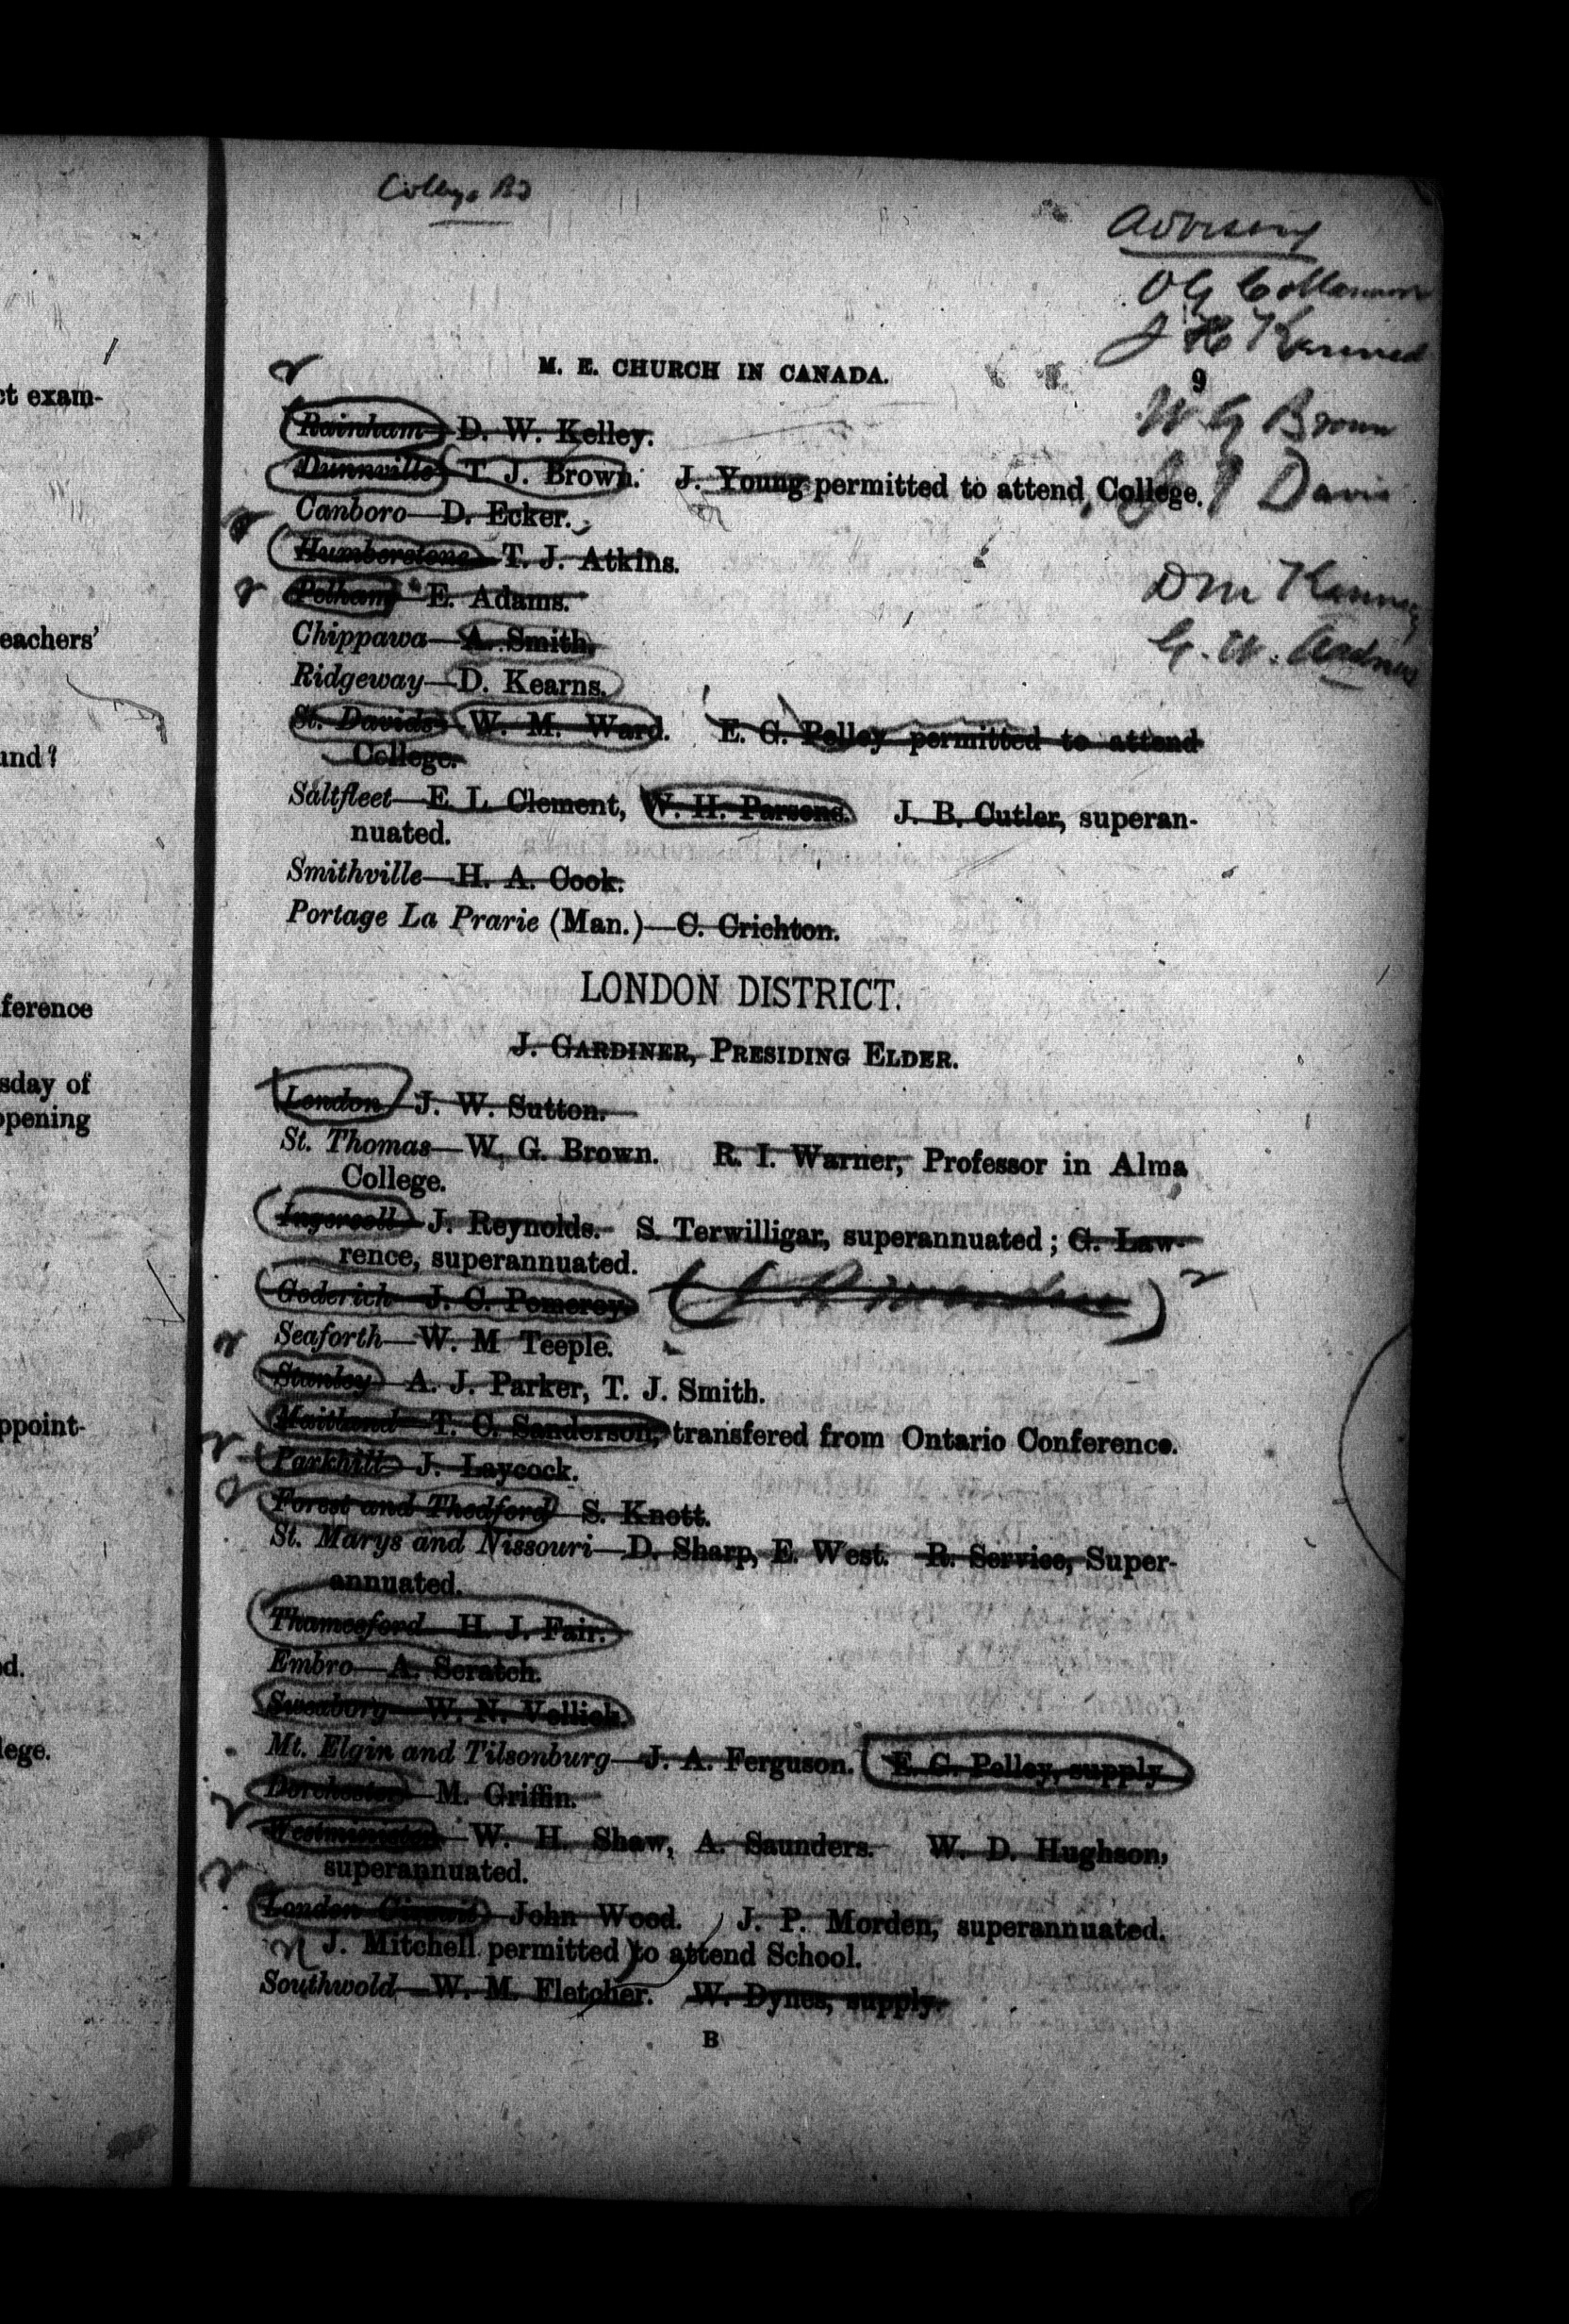 ct exam-
eachers'
und?
ference
sday of
opening
ppoint-
d.
lege.
College Bd
Advisory
O G Collamore
W G Brown
Davis
D M Kennedy
G. W. Andrews
M. E. CHURCH IN CANADA.
9
Rainham—D. W. Kelley.
Dunnville—T. J. Brown. J. Young permitted to attend College.
Canboro—D. Ecker.
Humberstone—T. J. Atkins.
Pelham—E. Adams.
Chippawa—A. Smith,
Ridgeway—D. Kearns.
St. Davids—W. M. Ward. E. G. Pelley permitted to attend
College.
Saltfleet—E. L. Clement, W. H. Parsons. J. B. Cutler, superan-
nuated.
Smithville—H. A. Cook.
Portage La Prarie (Man.)—C. Crichton.
LONDON DISTRICT.
J. GARDINER, PRESIDING ELDER.
London—J. W. Sutton.
St. Thomas—W. G. Brown. R. I. Warner, Professor in Alma
College.
Ingersoll—J. Reynolds. S. Terwilligar, superannuated; G. Law-
rence, superannuated.
Goderich—J. C. Pomeroy.
Seaforth—W. M Teeple.
Stanley—A. J. Parker, T. J. Smith.
Maitland—T. C. Sanderson, transfered from Ontario Conference.
Parkhill—J. Laycock.
Forest and Thedford—S. Knott.
St. Marys and Nissouri—D. Sharp, E. West. R. Service, Super-
annuated.
Thamesford—H. J. Fair.
Embro—A. Scratch.
Sweaborg—W. N. Vollick.
Mt. Elgin and Tilsonburg—J. A. Ferguson. E. G. Pelley, supply.
Dorchester—M. Griffin.
Westminster—W. H. Shaw, A. Saunders. W. D. Hughson,
superannuated.
London Circuit—John Wood. J. P. Morden, superannuated.
J. Mitchell permitted to attend School.
Southwold—W. M. Fletcher. W. Dynes, supply.
B